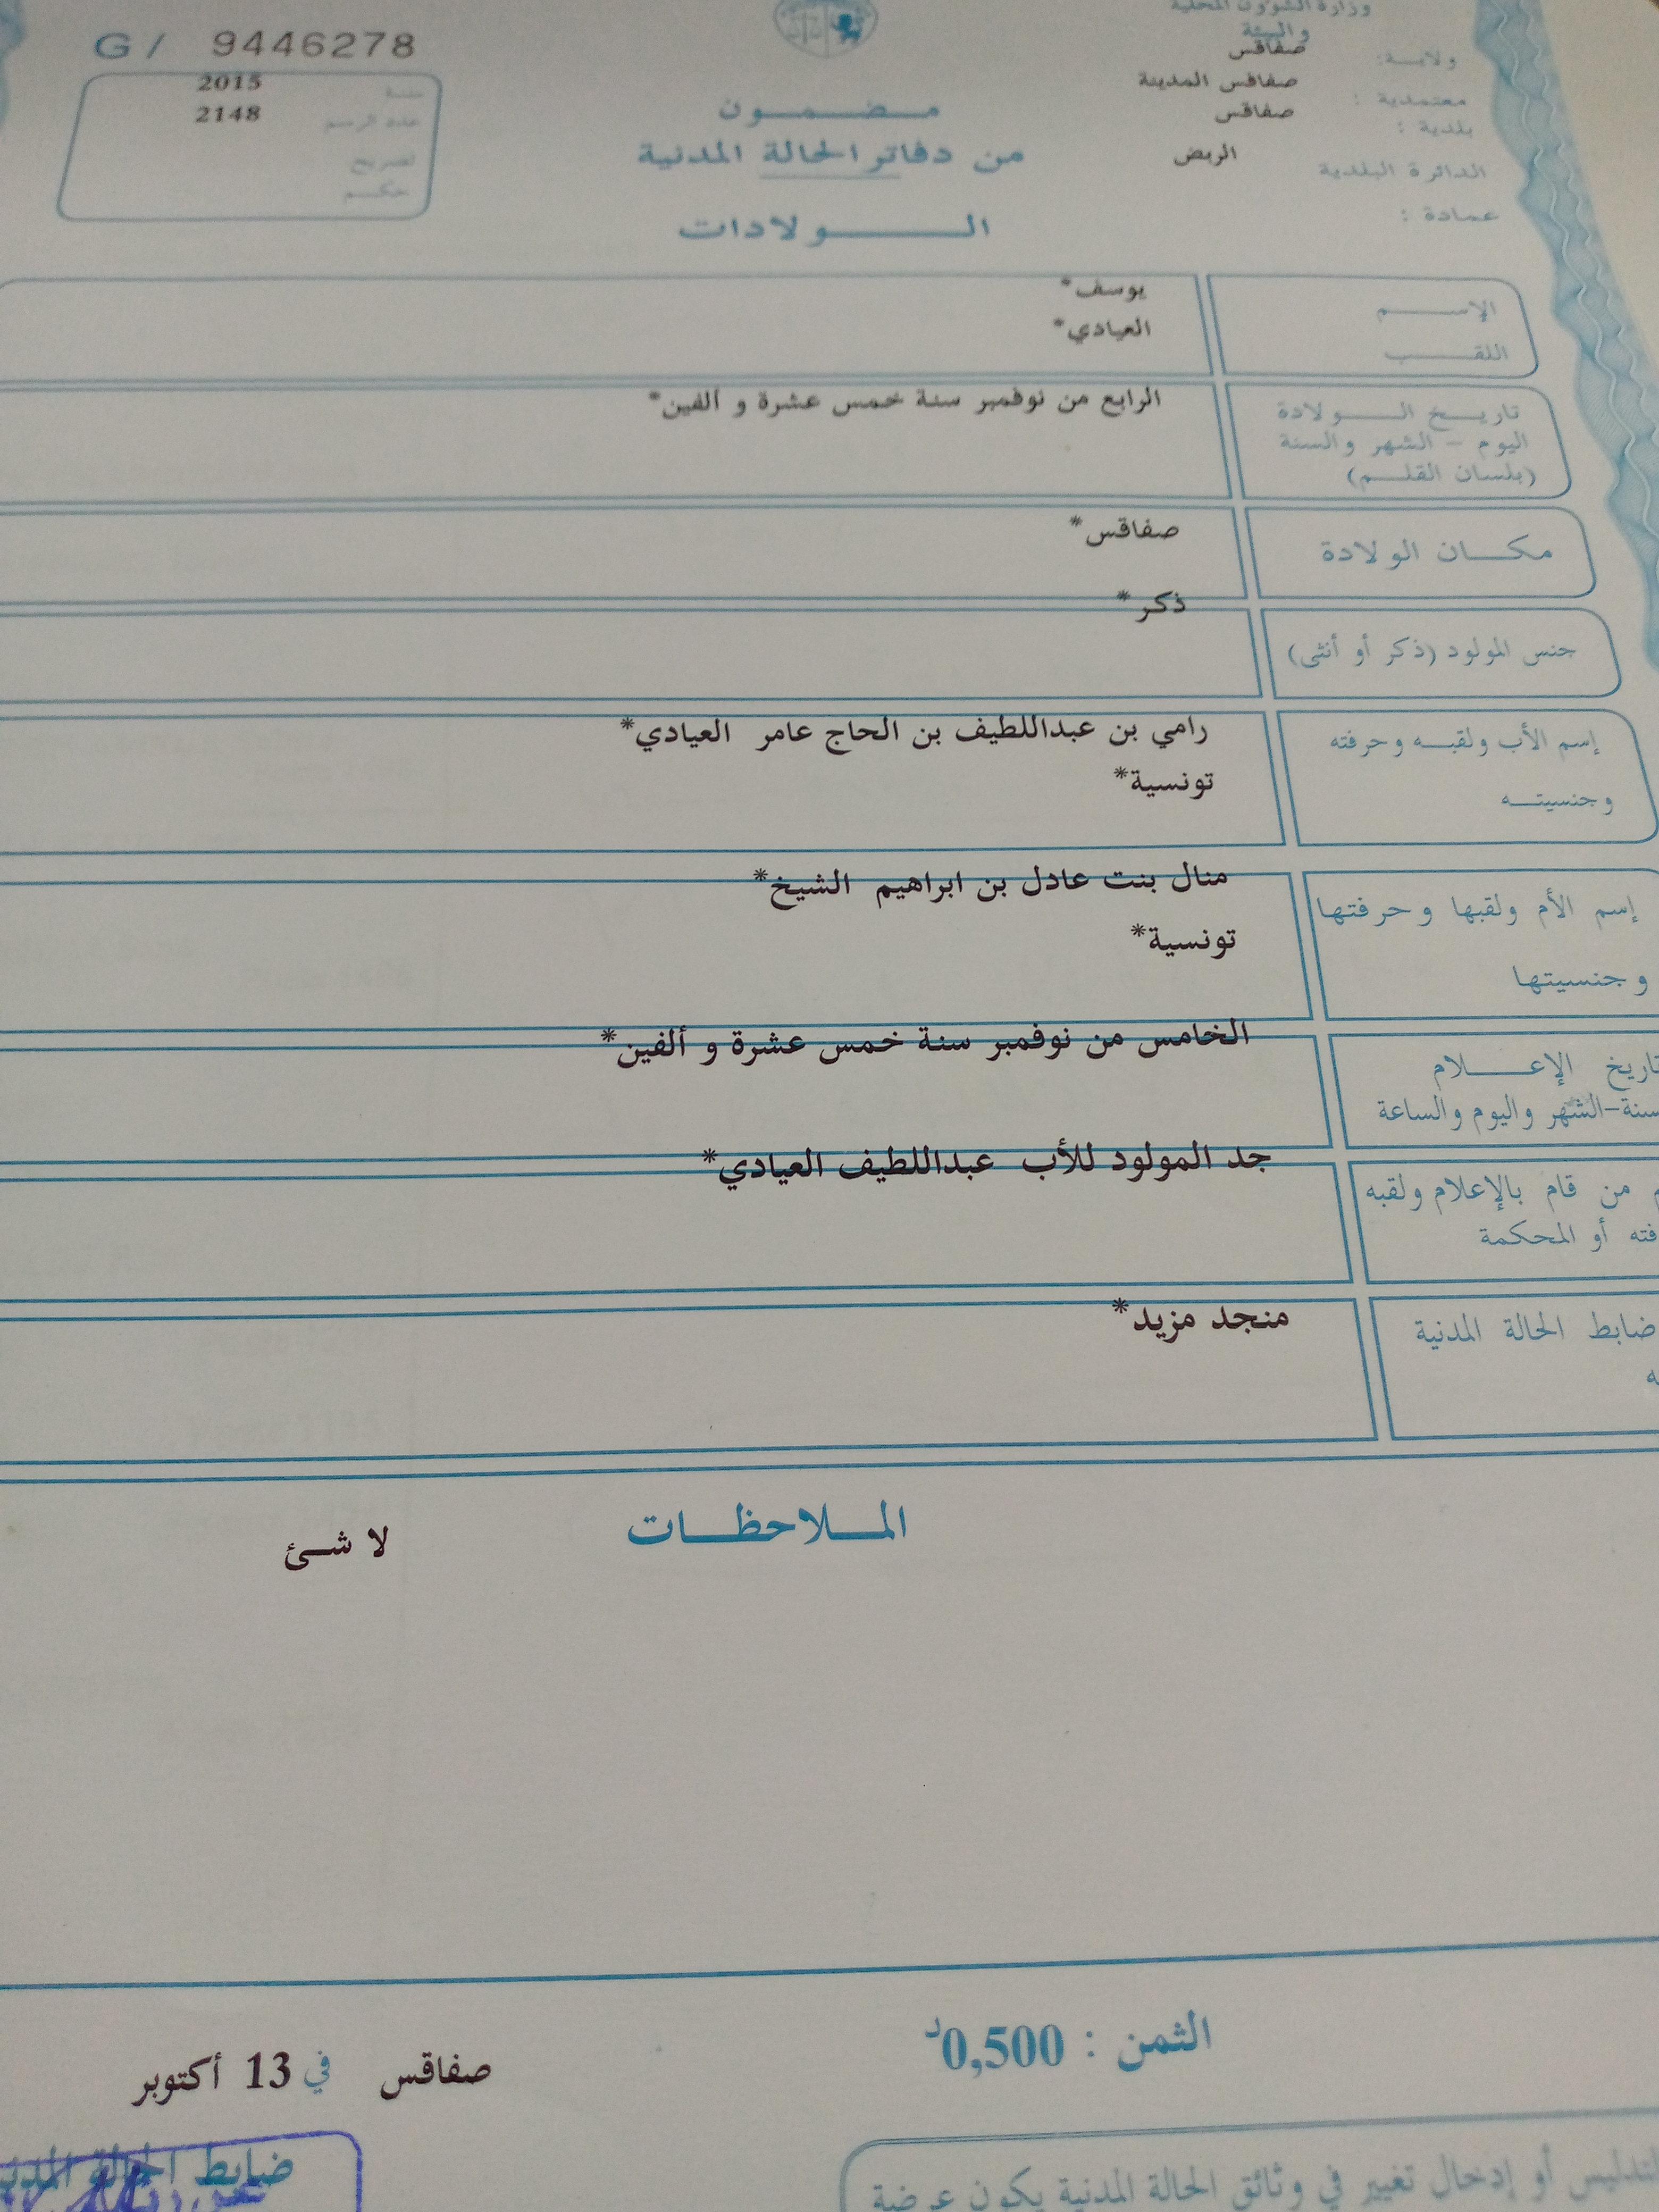 وزارة الشؤون المحلية
والبيئة
ولايــة: صفاقس
معتمدية : صفاقس المدينة
بلدية : صفاقس
الدائرة البلدية الربض
عمادة :
G / 9446278
سنة 2015
عدد الرسم 2148
تصريح
حكم
مضمون
من دفاتر الحالة المدنية
الولادات
الإسم يوسف*
اللقب العيادي*
تاريخ الولادة الرابع من نوفمبر سنة خمس عشرة و ألفين*
اليوم - الشهر والسنة
(بلسان القلم)
مكان الولادة صفاقس*
جنس المولود (ذكر أو أنثى) ذكر*
إسم الأب ولقبه وحرفته رامي بن عبداللطيف بن الحاج عامر العيادي*
وجنسيته تونسية*
إسم الأم ولقبها وحرفتها منال بنت عادل بن ابراهيم الشيخ*
وجنسيتها تونسية*
تاريخ الإعلام الخامس من نوفمبر سنة خمس عشرة و ألفين*
سنة-الشهر واليوم والساعة
من قام بالإعلام ولقبه جد المولود للأب عبداللطيف العيادي*
أو المحكمة
ضابط الحالة المدنية منجد مزيد*
الملاحظات
لا شئ
الثمن : 0,500د
صفاقس في 13 أكتوبر
ضابط الحالة
التدليس أو إدخال تغيير في وثائق الحالة المدنية يكون عرضة